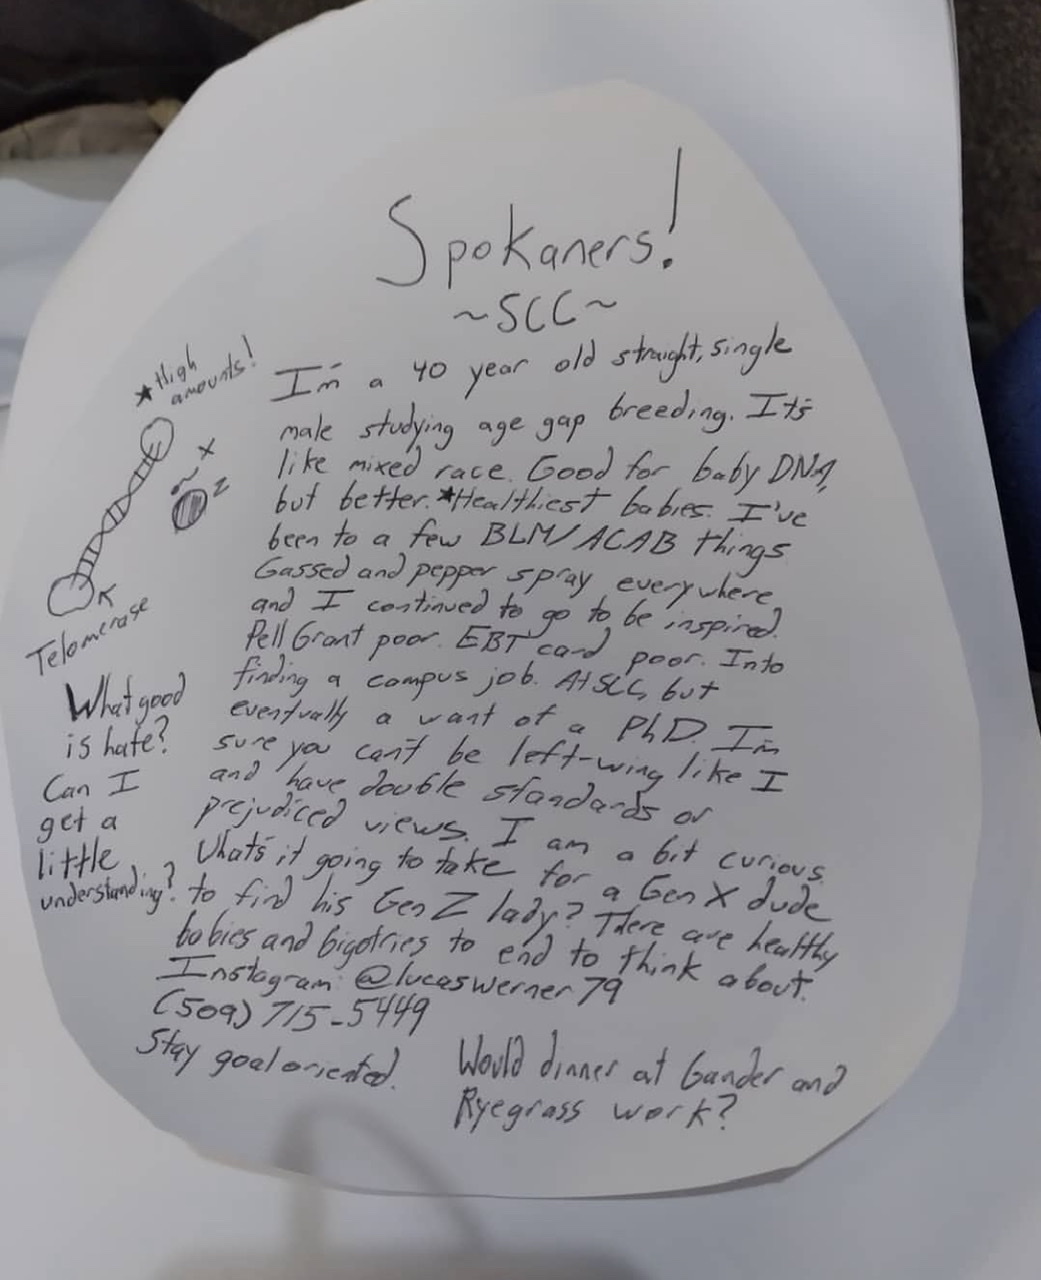 Spokaners!
~SCC~
I'm a 40 year old straight, single
male studying age gap breeding. It's
like mixed race. Good for baby DNA,
but better. *Healthiest babies. I've
been to a few BLM/ACAB things
Gassed and pepper spray everywhere
and I continued to go to be inspired.
Pell Grant poor. EBT card poor. Into
finding a campus job. At SCC, but
eventually a want of a PhD. I'm
sure you can't be left-wing like I
and have double standards or
prejudiced views. I am a bit curious.
What's it going to take for a Gen X dude
to find his Gen Z lady? There are healthy
babies and bigotries to end to think about.
Instagram: @lucaswerner79
(509) 715-5449
Stay goal oriented.
Would dinner at Gander and
Ryegrass work?
*High
amounts!
X
Z
Telomerase
What good
is hate?
Can I
get a
little
understanding?